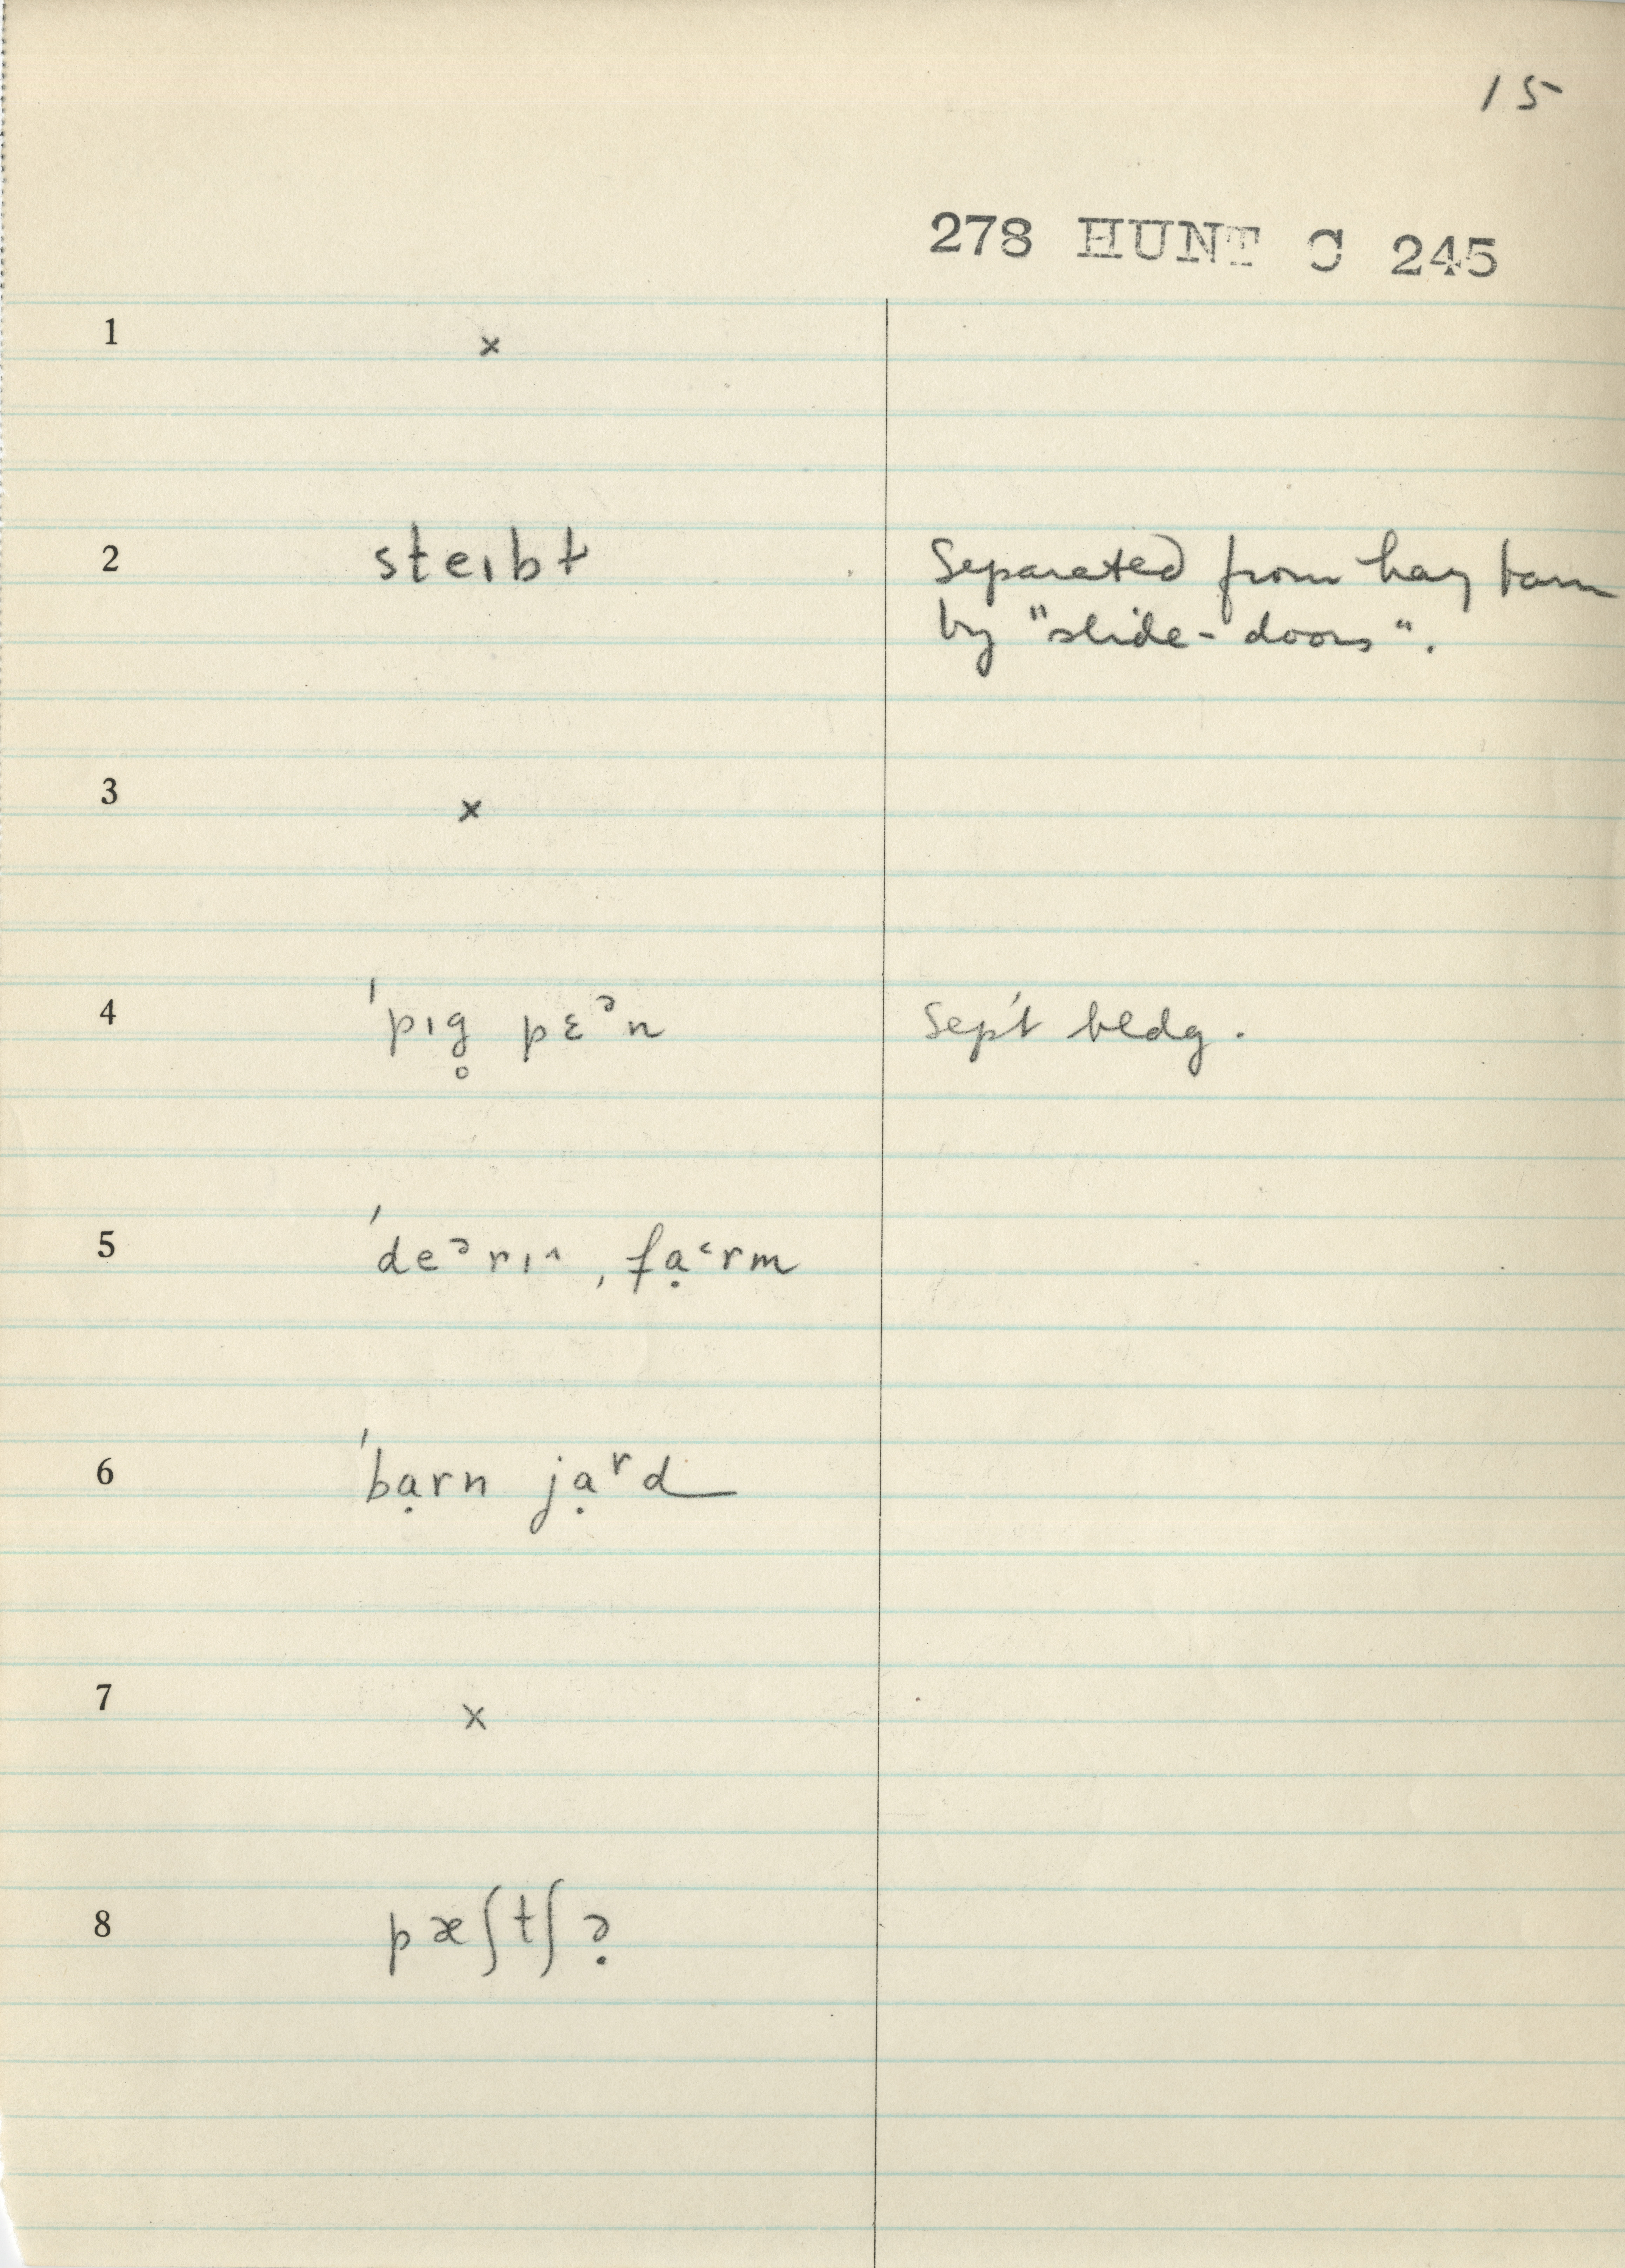 15
278 HUNT C 245
1 ×
2 steɪbɫ Separated from hay barn
by "slide-doors".
3 ×
4 ˈpɪg̥ pɛᵊn Sep't bldg.
5 ˈdeᵊrɪ˄ ˌfạ˂rm
6 ˈbạrn jạʳd
7 ×
8 pæʃtʃə̣